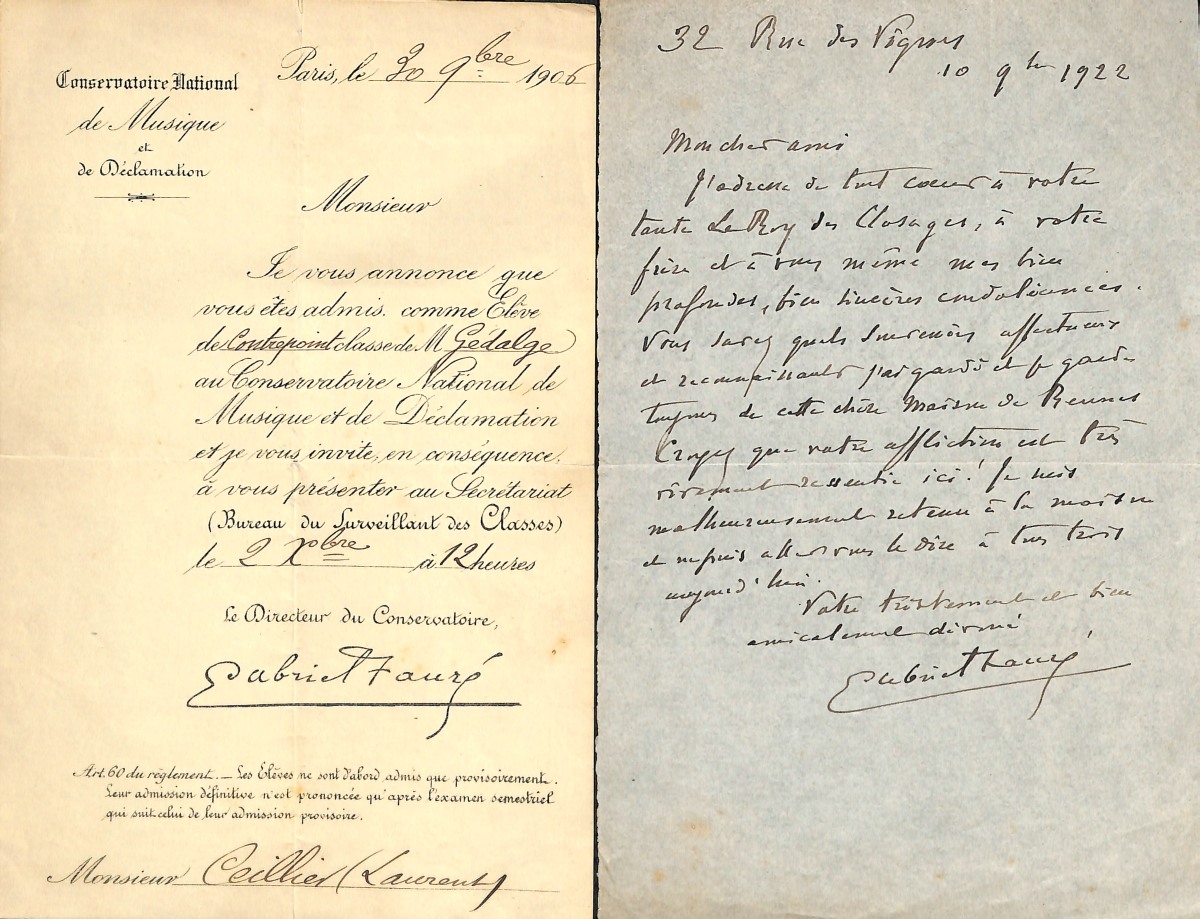 Conservatoire National
de Musique
et
de Déclamation
Paris, le 30 9bre 1906
Monsieur
Je vous annonce que
vous êtes admis comme Elève
de Contrepoint classe de M. Gédalge
au Conservatoire National de
Musique et de Déclamation
et je vous invite, en conséquence,
à vous présenter au Secrétariat
(Bureau du Surveillant des Classes)
le 2 Xbre à 12 heures
Le Directeur du Conservatoire,
Gabriel Fauré
Art. 60 du règlement. — Les Elèves ne sont d'abord admis que provisoirement.
Leur admission définitive n'est prononcée qu'après l'examen semestriel
qui suit celui de leur admission provisoire.
Monsieur Ceillier (Laurent)
32 Rue des Vignes
10 9bre 1922
Mon cher ami
J'adresse de tout coeur à votre
tante Le Roy des Closages, à votre
frère et à vous même mes bien
profondes, bien sincères condoléances.
Vous savez quels souvenirs affectueux
et reconnaissants j'ai gardé et je garde
toujours de cette chère maison de Rennes
Croyez que votre affliction est très
vivement ressentie ici! Je suis
malheureusement retenu à la maison
et ne puis aller vous le dire à tous trois
aujourd'hui.
Votre tristement et bien
amicalement dévoué
Gabriel Fauré